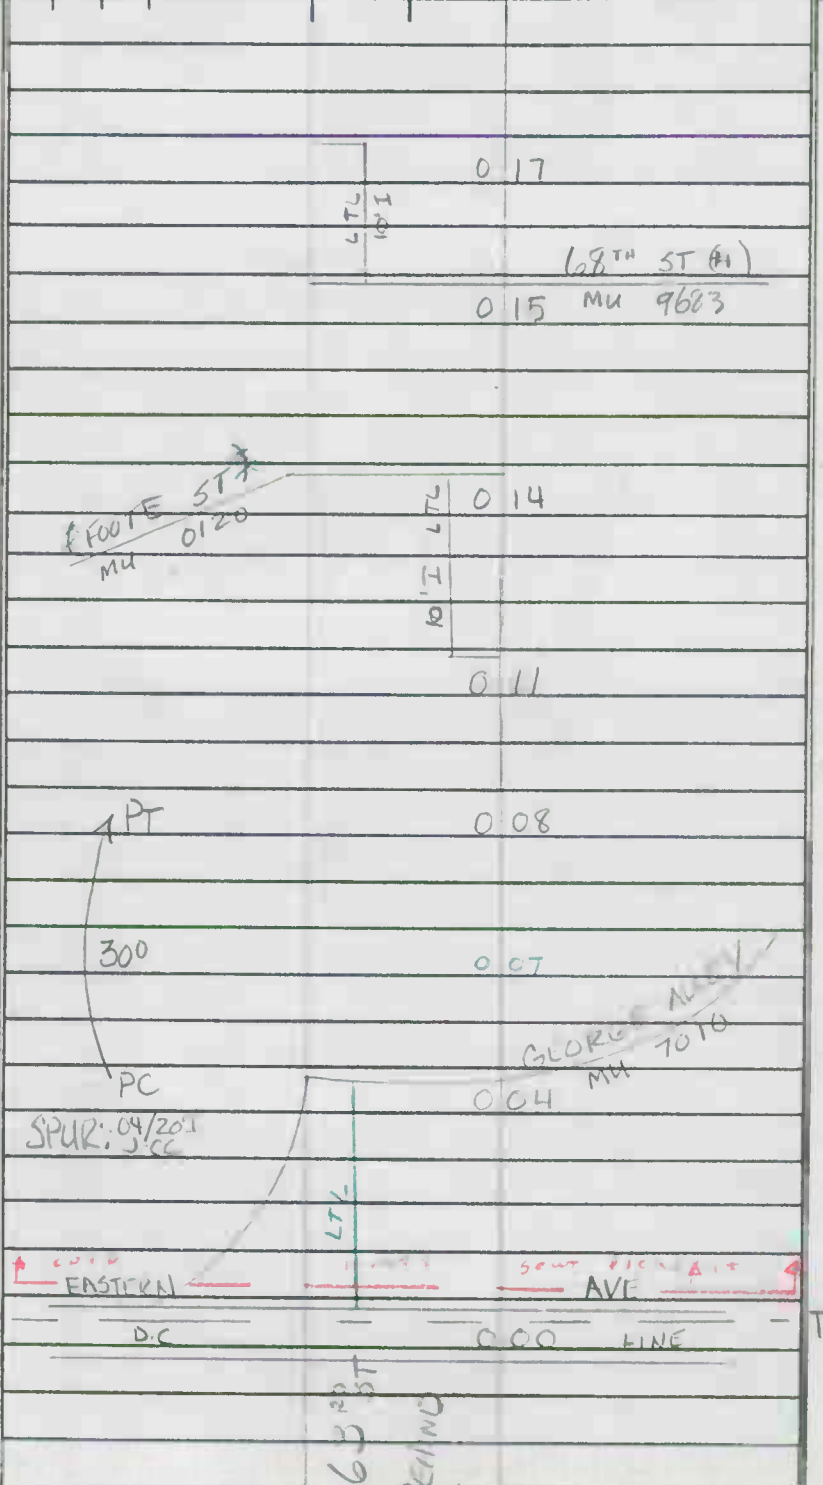 0 17
L TL
10' I
68TH ST (H)
0 15 MU 9683
FOOTE ST
MU 0120
0 14
10' I L TL
0 11
PT
0 08
30°
0 07
GEORGE ALLEY
MU 7010
PC
0 04
SPUR: 04/20
LTL
EASTERN AVE
D.C 0 00 LINE
63RD ST